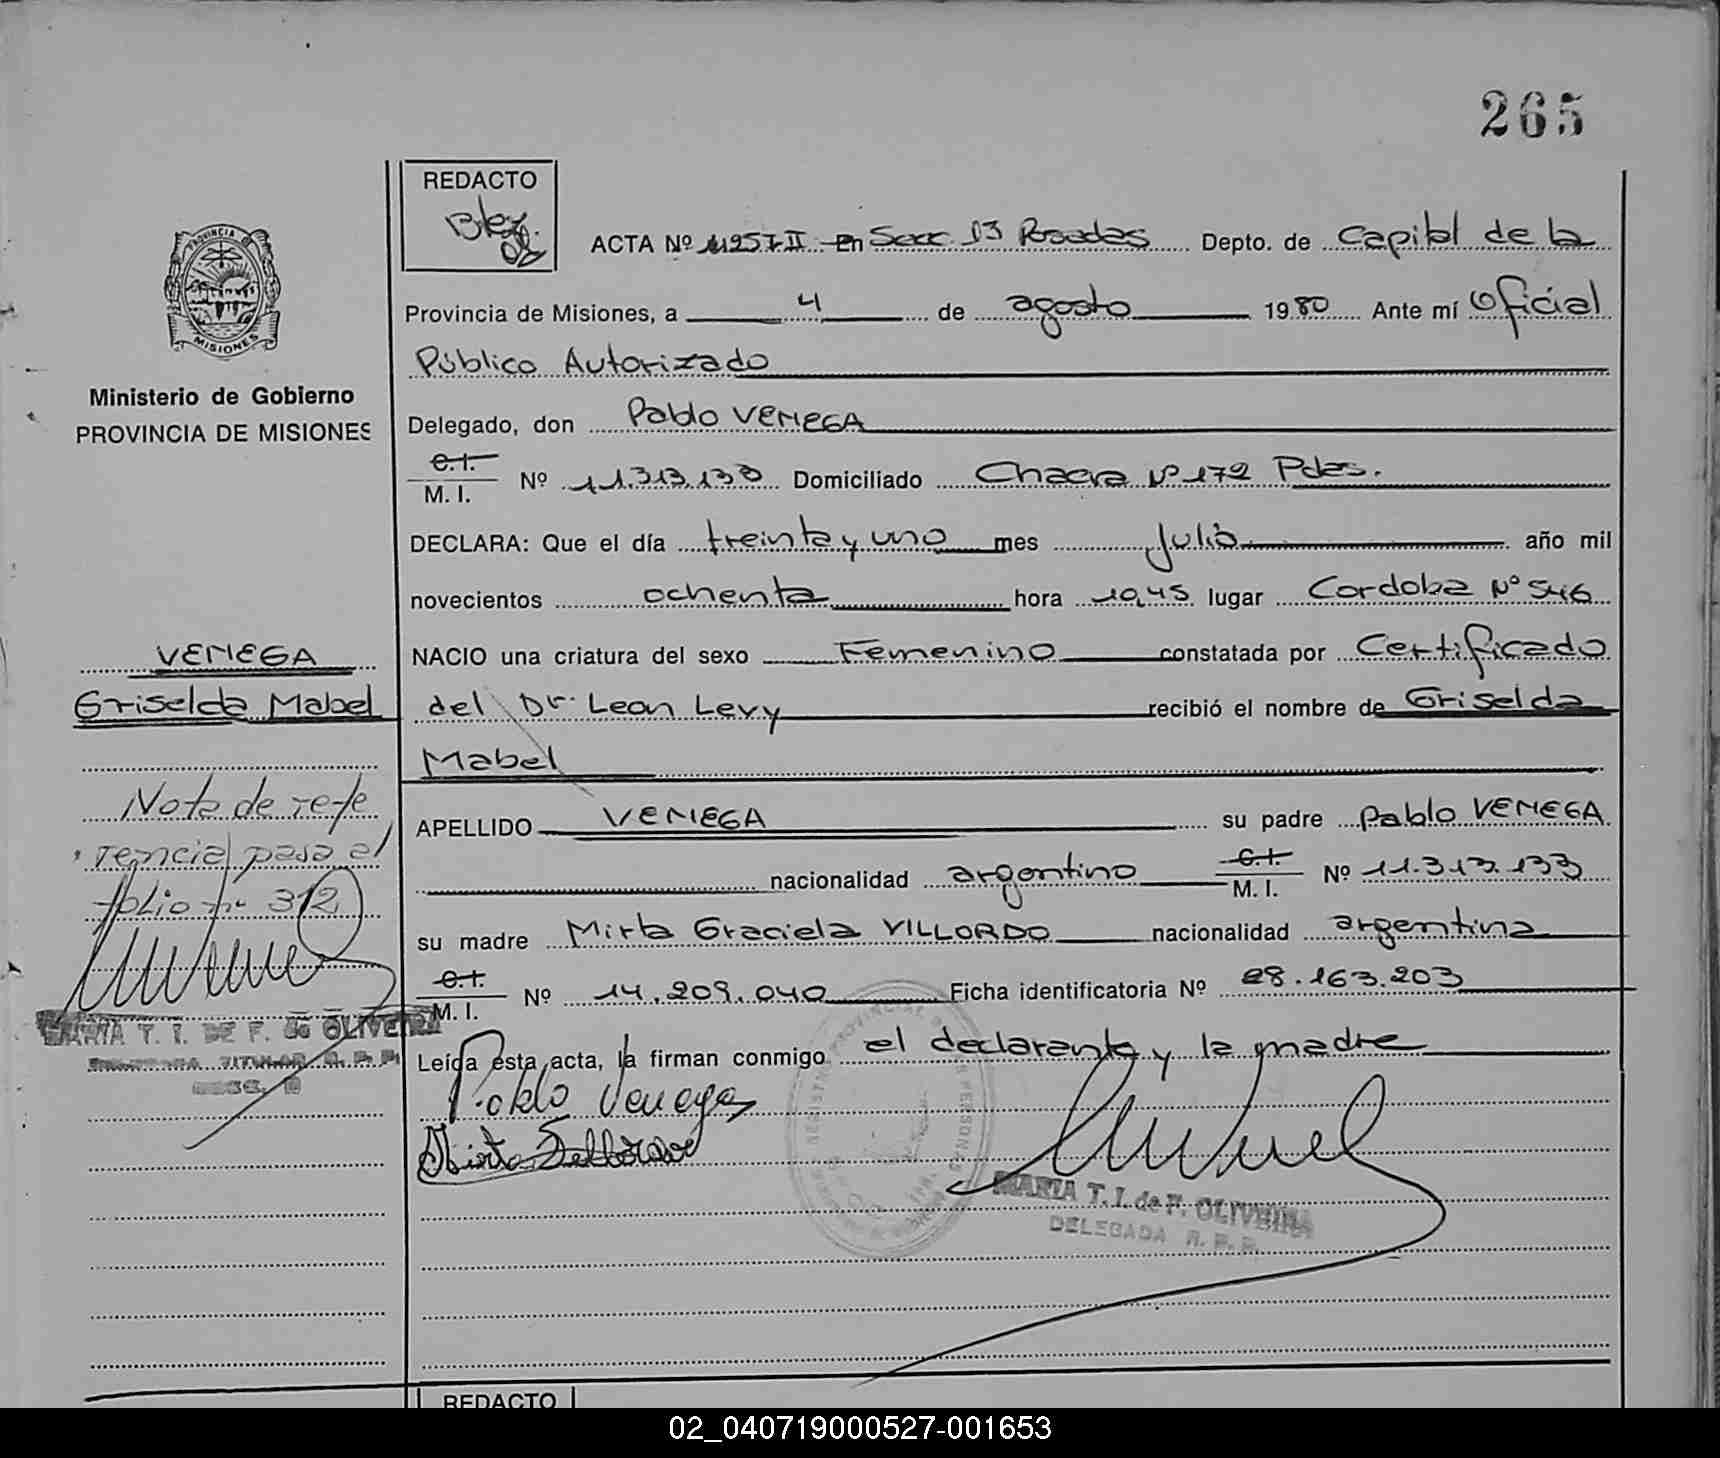 265
REDACTO
ACTA Nº 1257 II en Secc. 13 Posadas Depto. de Capital de la
PROVINCIA DE
MISIONES
Provincia de Misiones, a 4 de agosto 1980 Ante mí Oficial
Público Autorizado
Ministerio de Gobierno
PROVINCIA DE MISIONES
Delegado, don Pablo VENEGA
C.I.
M. I. Nº 11.313.133 Domiciliado Chacra Nº 172 Pdas.
DECLARA: Que el día treinta y uno mes Julio año mil
novecientos ochenta hora 10,45 lugar Cordoba Nº 546
VENEGA
Griselda Mabel
NACIO una criatura del sexo Femenino constatada por Certificado
del Dr. Leon Levy recibió el nombre de Griselda
Mabel
Nota de refe
rencia pasa al
folio nº 312
APELLIDO VENEGA su padre Pablo VENEGA
nacionalidad argentino C.I. M. I. Nº 11.313.133
su madre Mirta Graciela VILLORDO nacionalidad argentina
C.I.
M. I. Nº 14.209.040 Ficha identificatoria Nº 28.163.203
MARIA T. I. DE F. de OLIVEIRA
DELEGADA TITULAR R. P. P.
SECC.
Leída esta acta, la firman conmigo el declarante y la madre
Pablo Venega
Mirta Villordo
MARIA T. I. de F. OLIVEIRA
DELEGADA R. P. P.
REDACTO
02_040719000527-001653